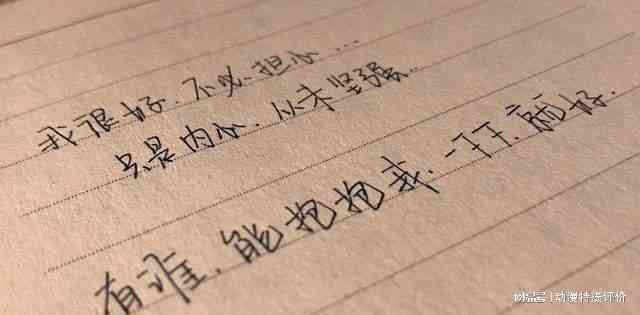 我很好.不必担心...
只是内心.从未坚强..
有谁.能抱抱我.一下下.就好.
动漫特搜评价